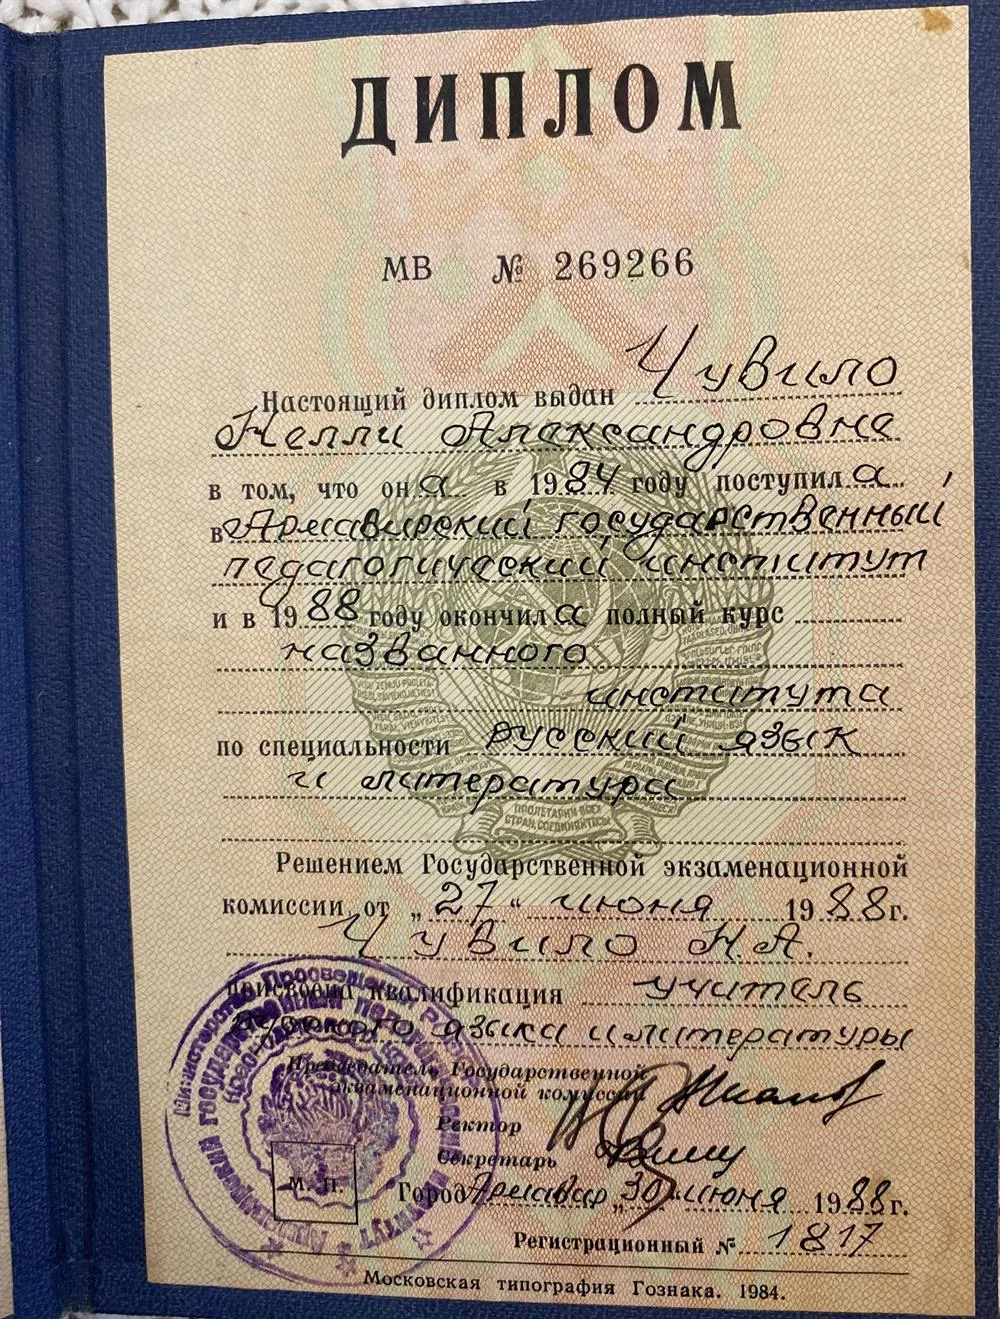 ДИПЛОМ
МВ № 269266
Настоящий диплом выдан Чувило
Нелли Александровне
в том, что она в 1984 году поступила
в Армавирский государственный
педагогический институт
и в 1988 году окончила полный курс
названного
института
по специальности русский язык
и литература
ПРОЛЕТАРИИ ВСЕХ
СТРАН, СОЕДИНЯЙТЕСЬ!
Решением Государственной экзаменационной
комиссии от „27“ июня 1988г.
Чувило Н.А.
присвоена квалификация учитель
русского языка и литературы
Председатель Государственной
экзаменационной комиссии
Ректор
Секретарь
М. П.
Город Армавир „30“ июня 1988г.
Регистрационный № 1817
Московская типография Гознака. 1984.